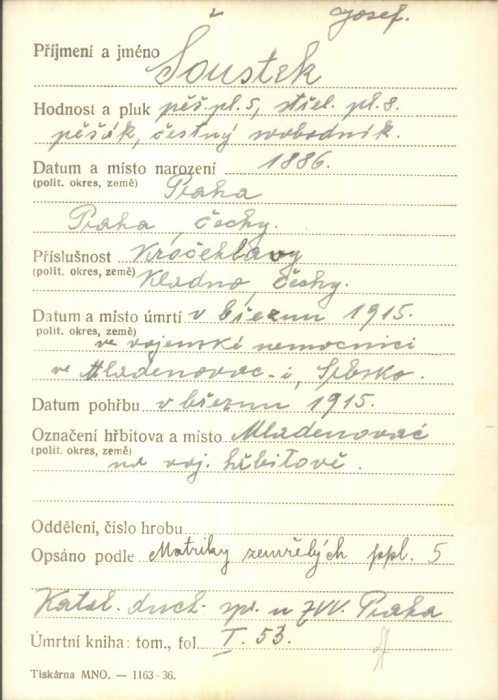 Josef.
Příjmení a jméno Šoustek
Hodnost a pluk pěš. pl. 5, střel. pl. 8.
pěšák, čestný svobodník.
Datum a místo narození 1886.
(polit. okres, země) Praha
Praha, Čechy.
Příslušnost Kročehlavy
(polit. okres, země) Kladno, Čechy.
Datum a místo úmrtí v březnu 1915.
polit. okres, země)
ve vojenské nemocnici
ve Mladenovac-i, Srbsko.
Datum pohřbu v březnu 1915.
Označení hřbitova a místo Mladenovac
(polit. okres, země)
na voj. hřbitově.
Oddělení, číslo hrobu
Opsáno podle Matriky zemřelých ppl. 5
Katol. duch. spr. u ZVV. Praha
Úmrtní kniha: tom., fol. I. 53.
Tiskárna MNO. — 1163-36.